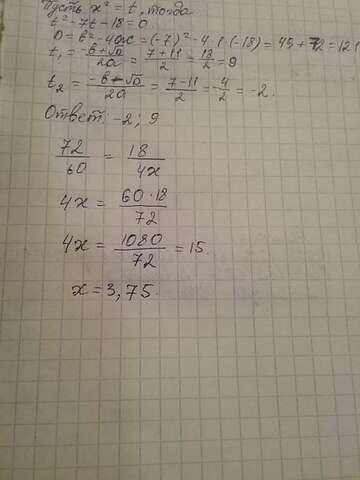 Пусть x² = t, тогда
t² - 7t - 18 = 0
D = b² - 4ac = (-7)² - 4·1·(-18) = 49 + 72 = 121
t₁ = (-b + √D)/2a = (7 + 11)/2 = 18/2 = 9
t₂ = (-b - √D)/2a = (7 - 11)/2 = -4/2 = -2.
Ответ: -2; 9
72/60 = 18/4x
4x = 60·18/72
4x = 1080/72 = 15
x = 3,75.